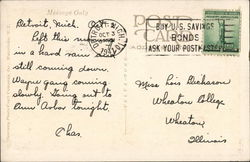 Message Only
Detroit, Mich.
Left this noon
in a hard rain
still coming down.
Wayne gang coming
slowly. Going out to
Ann Arbor tonight.
Chas.
POST CARD
DETROIT, MICH.
OCT 3
BUY U.S. SAVINGS
BONDS
ASK YOUR POSTMASTER
Miss Lois Dickason
Wheaton College
Wheaton
Illinois